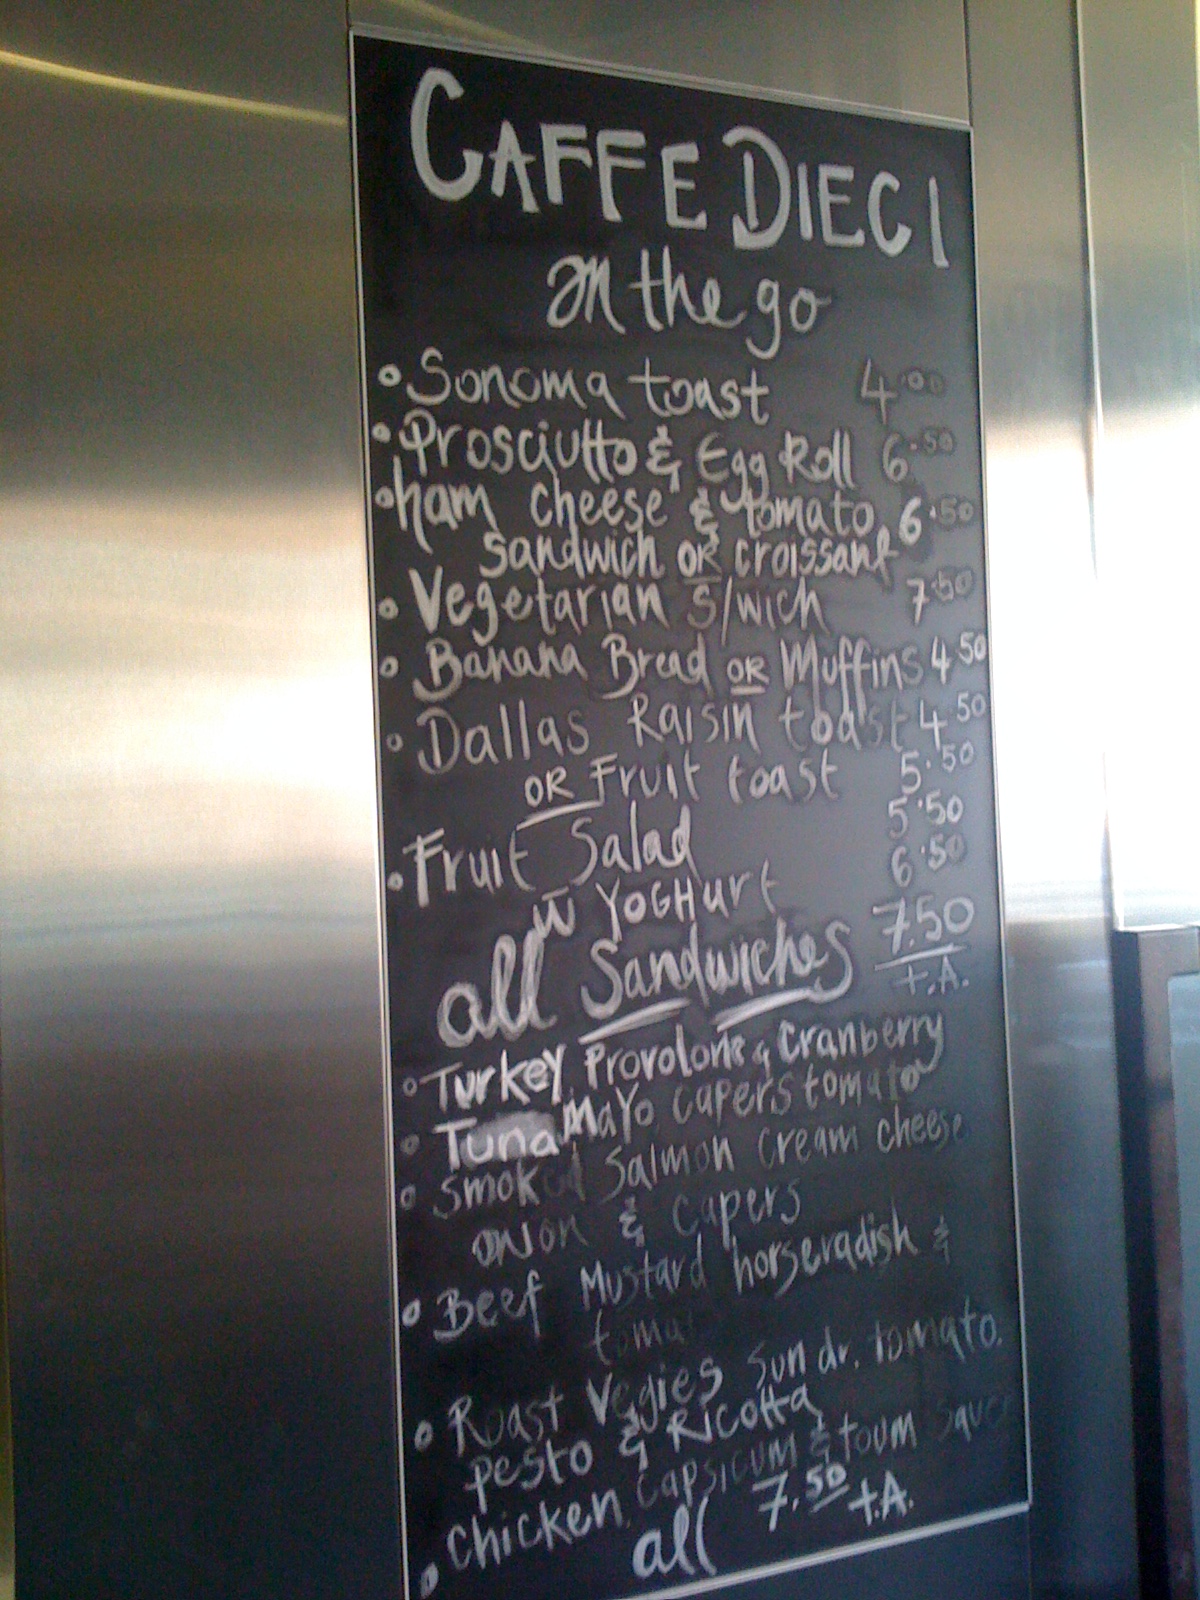 CAFFE DIECI
on the go
Sonoma toast 4.00
Prosciutto & Egg Roll 6.50
ham cheese & tomato 6.50
sandwich OR croissant
Vegetarian s/wich 7.50
Banana Bread OR Muffins 4.50
Dallas Raisin toast 4.50
OR Fruit toast 5.50
Fruit Salad 5.50
w YOGHurt 6.50
all Sandwiches 7.50
T.A.
Turkey Provolone & Cranberry
Tuna Mayo capers tomato
smoked Salmon cream cheese
onion & capers
Beef Mustard horseradish &
Roast Vegies sun dr. tomato.
pesto & Ricotta
chicken, capsicum & toum sauce
all 7.50 T.A.